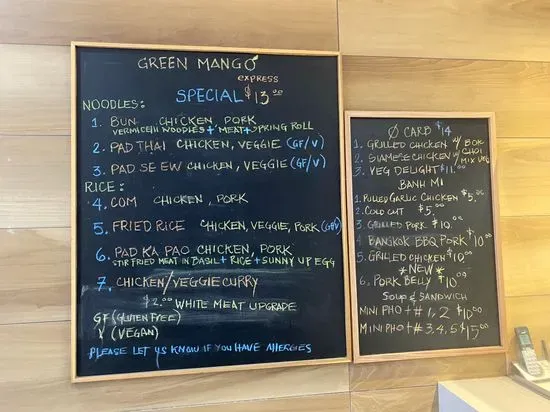 GREEN MANGO
EXPRESS
SPECIAL $13.00
NOODLES:
1. BUN CHICKEN, PORK
VERMICELLI NOODLES + MEAT + SPRING ROLL
2. PAD THAI CHICKEN, VEGGIE (GF/V)
3. PAD SE EW CHICKEN, VEGGIE (GF/V)
RICE:
4. COM CHICKEN, PORK
5. FRIED RICE CHICKEN, VEGGIE, PORK (GF/V)
6. PAD KA PAO CHICKEN, PORK
STIR FRIED MEAT IN BASIL + RICE + SUNNY UP EGG
7. CHICKEN/VEGGIE CURRY
$2.00 WHITE MEAT UPGRADE
GF (GLUTEN FREE)
V (VEGAN)
PLEASE LET US KNOW IF YOU HAVE ALLERGIES
Ø CARB $14
1. GRILLED CHICKEN W/ BOK CHOI
2. SIAMESE CHICKEN W/ MIX VEG
3. VEG DELIGHT $11.00
BANH MI
1. PULLED GARLIC CHICKEN $5.00
2. COLD CUT $5.00
3. GRILLED PORK $10.00
4. BANGKOK BBQ PORK $10.00
5. GRILLED CHICKEN $10.00
*NEW*
6. PORK BELLY $10.00
SOUP & SANDWICH
MINI PHO + # 1, 2 $10.00
MINI PHO + # 3, 4, 5 $15.00